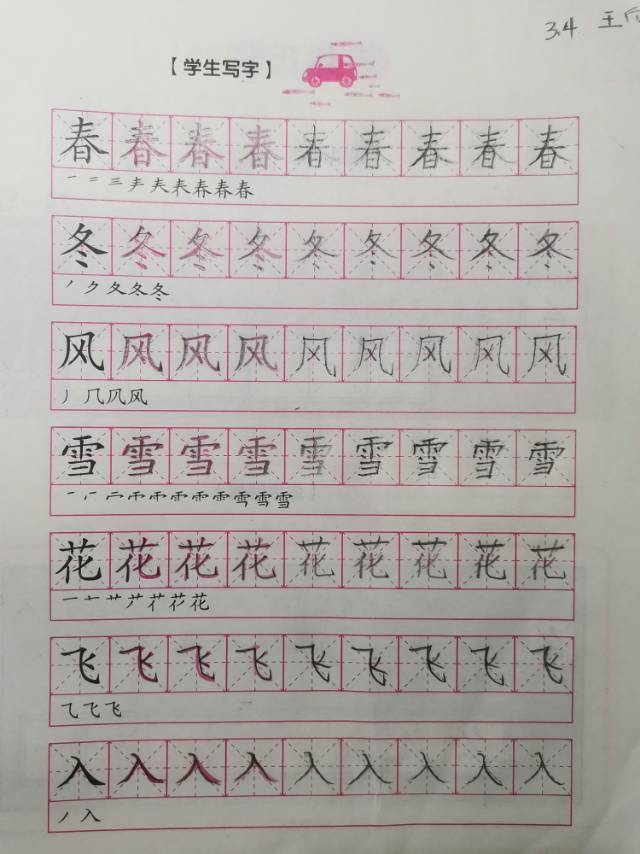 3.4 王
【学生写字】
春春春春春春春春春
一 二 三 𡗗 夫 夫 春 春 春
冬冬冬冬冬冬冬冬冬
丿 ク 夂 冬 冬
风风风风风风风风风
丿 几 风 风
雪雪雪雪雪雪雪雪雪
雪 雪
花花花花花花花花花
一 十 艹 花
飞飞飞飞飞飞飞飞飞
飞 飞
入入入入入入入入入
丿 入